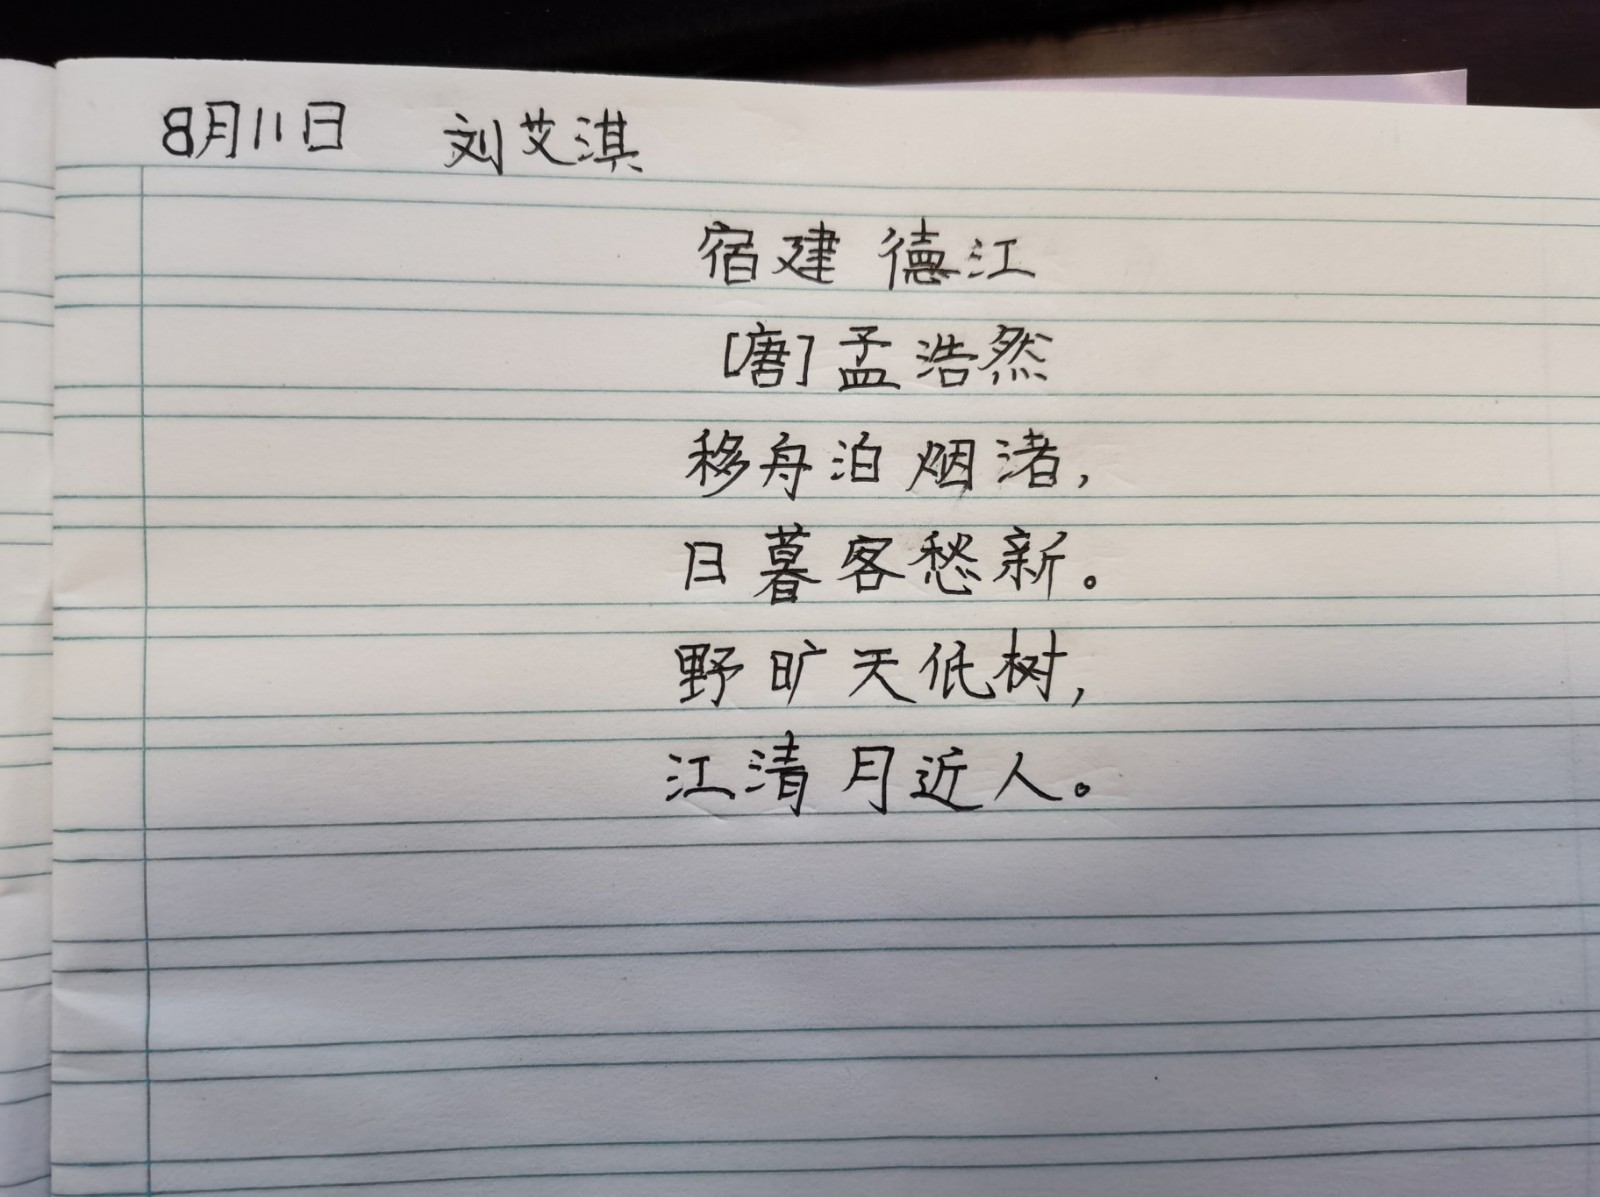 8月11日 刘艾淇
宿建德江
[唐]孟浩然
移舟泊烟渚,
日暮客愁新。
野旷天低树,
江清月近人。